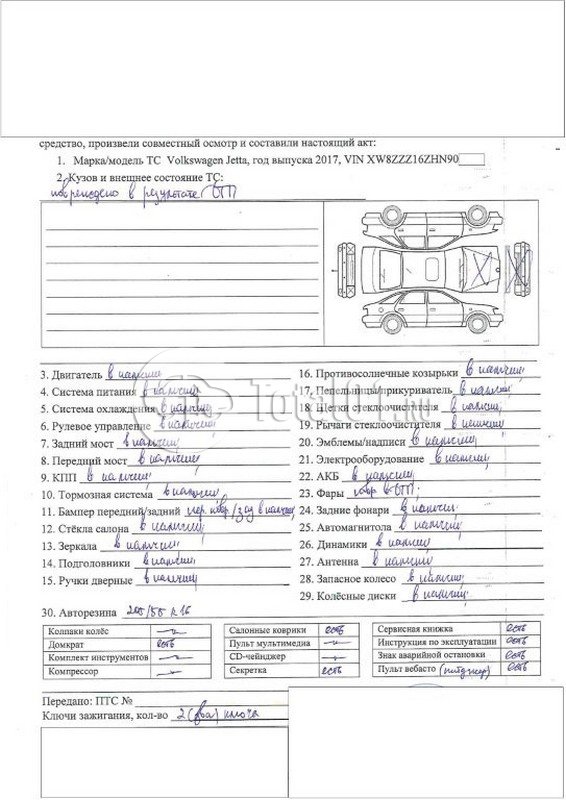 средство, произвели совместный осмотр и составили настоящий акт:
1. Марка/модель ТС Volkswagen Jetta, год выпуска 2017, VIN XW8ZZZ16ZHN90
2. Кузов и внешнее состояние ТС:
повреждено в результате ДТП
3. Двигатель в наличии
4. Система питания в наличии
5. Система охлаждения в наличии
6. Рулевое управление в наличии
7. Задний мост в наличии
8. Передний мост в наличии
9. КПП в наличии
10. Тормозная система в наличии
11. Бампер передний/задний пер. повр./зад в наличии
12. Стёкла салона в наличии
13. Зеркала в наличии
14. Подголовники в наличии
15. Ручки дверные в наличии
16. Противосолнечные козырьки в наличии
17. Пепельницы/прикуриватель в наличии
18. Щетки стеклоочистителя в наличии
19. Рычаги стеклоочистителя в наличии
20. Эмблемы/надписи в наличии
21. Электрооборудование в наличии
22. АКБ в наличии
23. Фары повр в ДТП
24. Задние фонари в наличии
25. Автомагнитола в наличии
26. Динамики в наличии
27. Антенна в наличии
28. Запасное колесо в наличии
29. Колёсные диски в наличии
Total01.ru
30. Авторезина 205/55 R16
Колпаки колёс —
Домкрат есть
Комплект инструментов —
Компрессор —
Салонные коврики есть
Пульт мультимедиа —
CD-чейнджер —
Секретка есть
Сервисная книжка есть
Инструкция по эксплуатации есть
Знак аварийной остановки есть
Пульт вебасто
Передано: ПТС №
Ключи зажигания, кол-во 2 (два) ключа